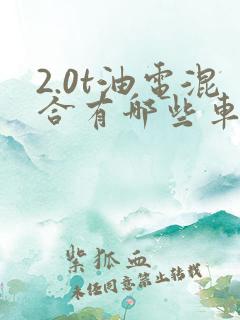 2.0t油電混
合有哪些車
紫狐血
未任同意禁止转载